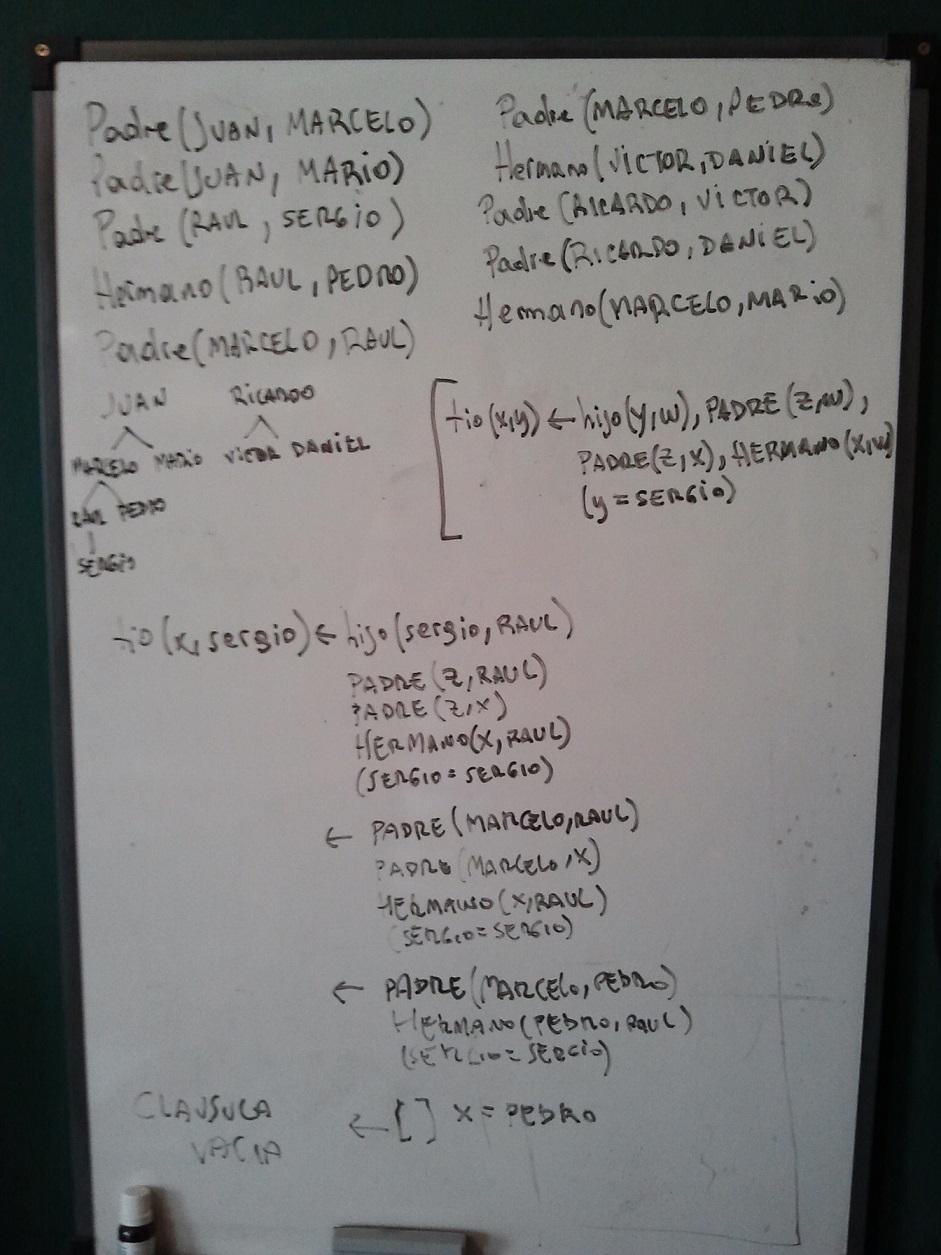 Padre(JUAN, MARCELO)
Padre(JUAN, MARIO)
Padre (RAUL, SERGIO)
Hermano(RAUL, PEDRO)
Padre(MARCELO, RAUL)
Padre (MARCELO, PEDRO)
Hermano(VICTOR, DANIEL)
Padre (RICARDO, VICTOR)
Padre(RICARDO, DANIEL)
Hermano(MARCELO, MARIO)
JUAN RICARDO
MARCELO MARIO VICTOR DANIEL
RAUL PEDRO
SERGIO
tio(x,y) ← hijo(y,w), PADRE(Z,W),
PADRE(Z,X), HERMANO(X,W)
(y=SERGIO)
tio(x,sergio) ← hijo(sergio, RAUL)
PADRE(Z,RAUL)
PADRE(Z,X)
HERMANO(X,RAUL)
(SERGIO=SERGIO)
← PADRE(MARCELO,RAUL)
PADRE(MARCELO,X)
HERMANO(X,RAUL)
(SERGIO=SERGIO)
← PADRE(MARCELO,PEDRO)
HERMANO(PEDRO,RAUL)
(SERGIO=SERGIO)
CLAUSULA
VACIA
← [ ] X=PEDRO